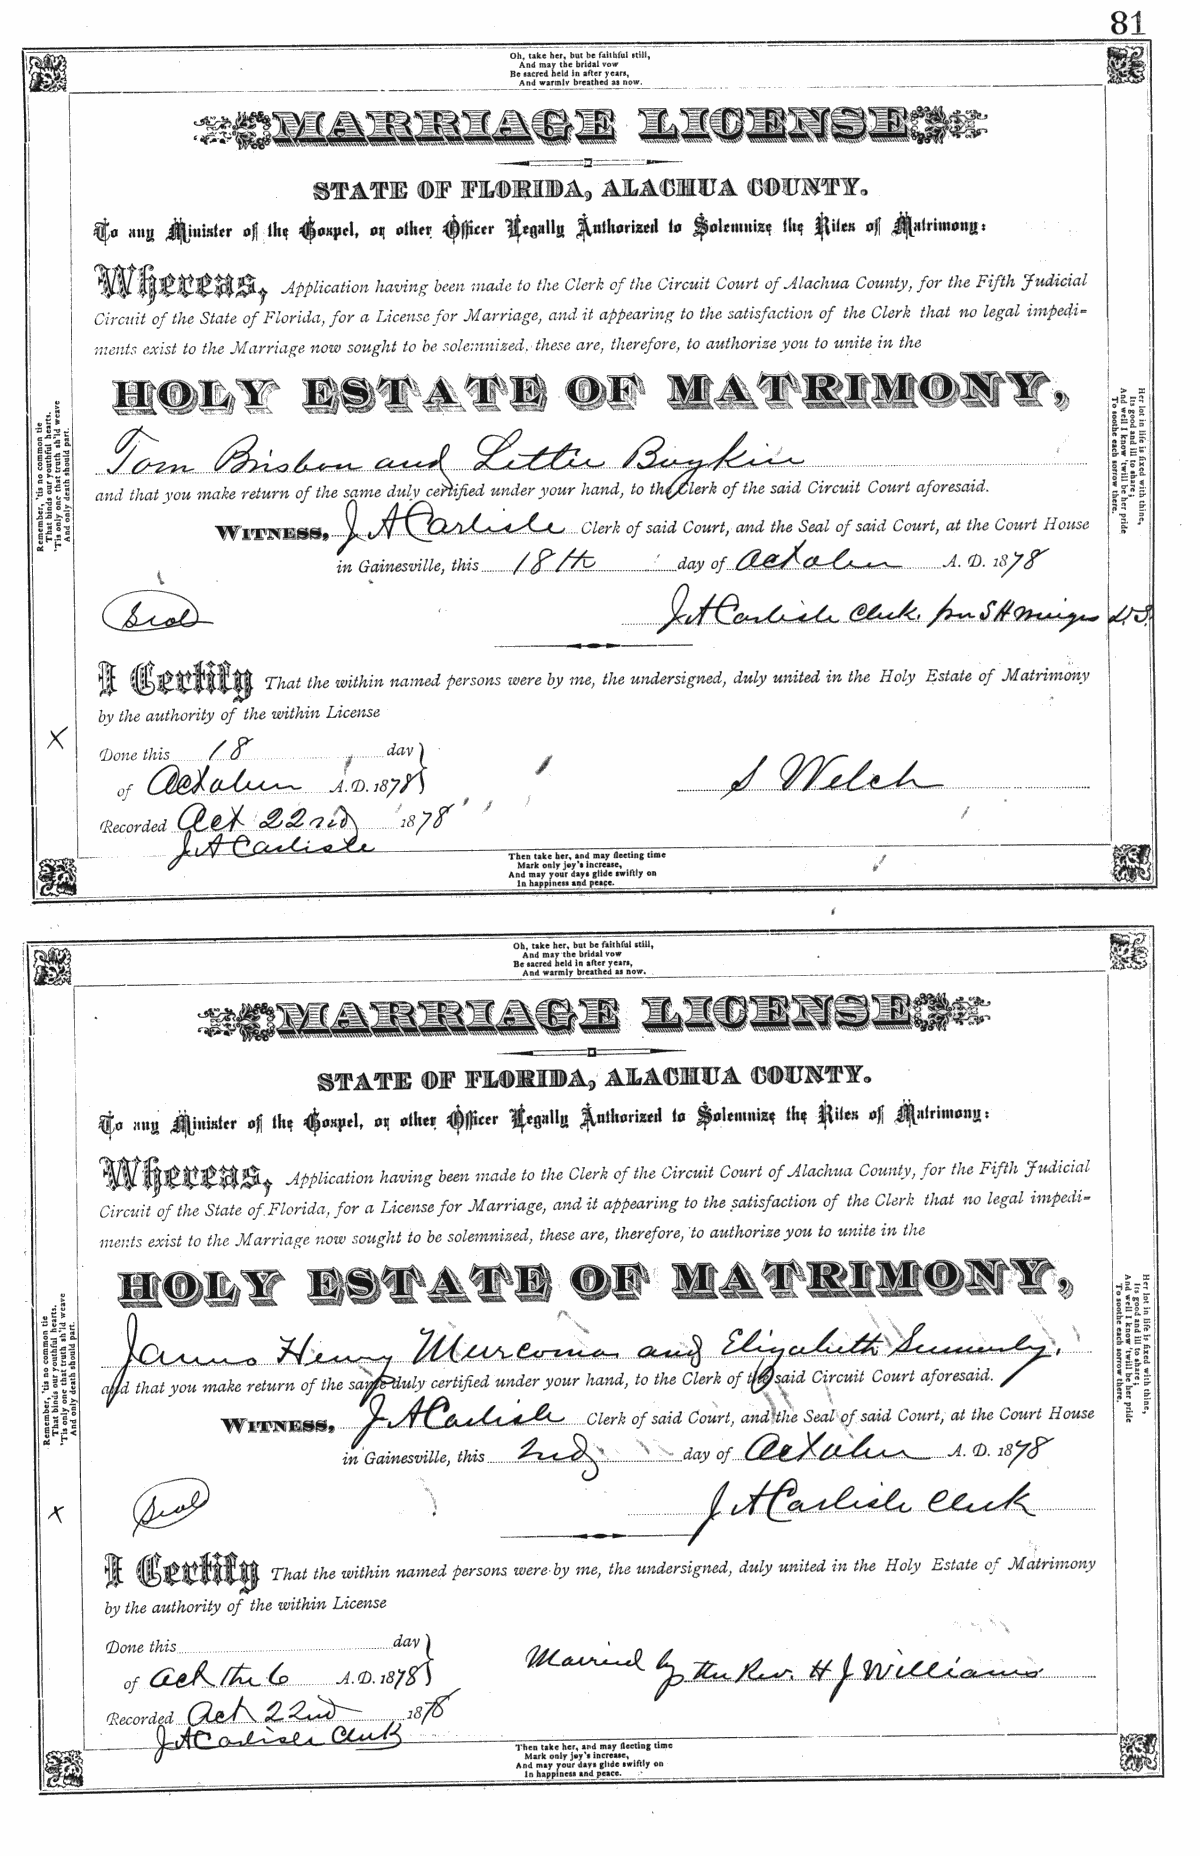 81
Oh, take her, but be faithful still,
And may the bridal vow
Be sacred held in after years,
And warmly breathed as now.
MARRIAGE LICENSE
STATE OF FLORIDA, ALACHUA COUNTY.
To any Minister of the Gospel, or other Officer Legally Authorized to Solemnize the Rites of Matrimony:
Whereas, Application having been made to the Clerk of the Circuit Court of Alachua County, for the Fifth Judicial
Circuit of the State of Florida, for a License for Marriage, and it appearing to the satisfaction of the Clerk that no legal impedi-
ments exist to the Marriage now sought to be solemnized, these are, therefore, to authorize you to unite in the
HOLY ESTATE OF MATRIMONY,
Tom Brisbon and Lettie Boykin
and that you make return of the same duly certified under your hand, to the Clerk of the said Circuit Court aforesaid.
WITNESS, J A Carlisle Clerk of said Court, and the Seal of said Court, at the Court House
in Gainesville, this 18th day of October A. D. 1878
Seal
J A Carlisle Clerk. per S H D.S.
I Certify That the within named persons were by me, the undersigned, duly united in the Holy Estate of Matrimony
by the authority of the within License
X
Done this 18 day
of October A.D. 1878
S Welch
Recorded Oct 22nd 1878
J A Carlisle
Then take her, and may fleeting time
Mark only joy's increase,
And may your days glide swiftly on
In happiness and peace.
Remember, 'tis no common tie
That binds our youthful hearts.
'Tis only one that truth sh'ld weave
And only death should part.
Her lot in life is fixed with thine,
Its good and ill to share;
And well I know 'twill be her pride
To soothe each sorrow there.
Oh, take her, but be faithful still,
And may the bridal vow
Be sacred held in after years,
And warmly breathed as now.
MARRIAGE LICENSE
STATE OF FLORIDA, ALACHUA COUNTY.
To any Minister of the Gospel, or other Officer Legally Authorized to Solemnize the Rites of Matrimony:
Whereas, Application having been made to the Clerk of the Circuit Court of Alachua County, for the Fifth Judicial
Circuit of the State of Florida, for a License for Marriage, and it appearing to the satisfaction of the Clerk that no legal impedi-
ments exist to the Marriage now sought to be solemnized, these are, therefore, to authorize you to unite in the
HOLY ESTATE OF MATRIMONY,
James Henry and Elizabeth
and that you make return of the same duly certified under your hand, to the Clerk of the said Circuit Court aforesaid.
WITNESS, J A Carlisle Clerk of said Court, and the Seal of said Court, at the Court House
in Gainesville, this 2nd day of October A. D. 1878
Seal
J A Carlisle Clerk
X
I Certify That the within named persons were by me, the undersigned, duly united in the Holy Estate of Matrimony
by the authority of the within License
Done this day
of Oct the 6 A.D. 1878
Married by the Rev. H J Williams
Recorded Oct 22nd 1878
J A Carlisle Clerk
Then take her, and may fleeting time
Mark only joy's increase,
And may your days glide swiftly on
In happiness and peace.
Remember, 'tis no common tie
That binds our youthful hearts.
'Tis only one that truth sh'ld weave
And only death should part.
Her lot in life is fixed with thine,
Its good and ill to share;
And well I know 'twill be her pride
To soothe each sorrow there.